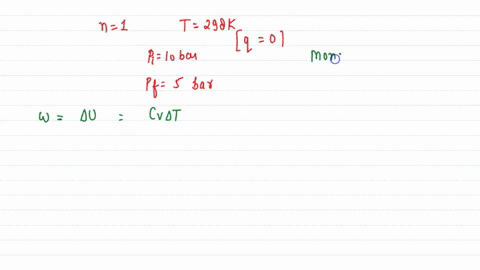 n=1 T=298K
[q = 0]
Pi=10 bar Mon
Pf= 5 bar
W = ΔU = CvΔT